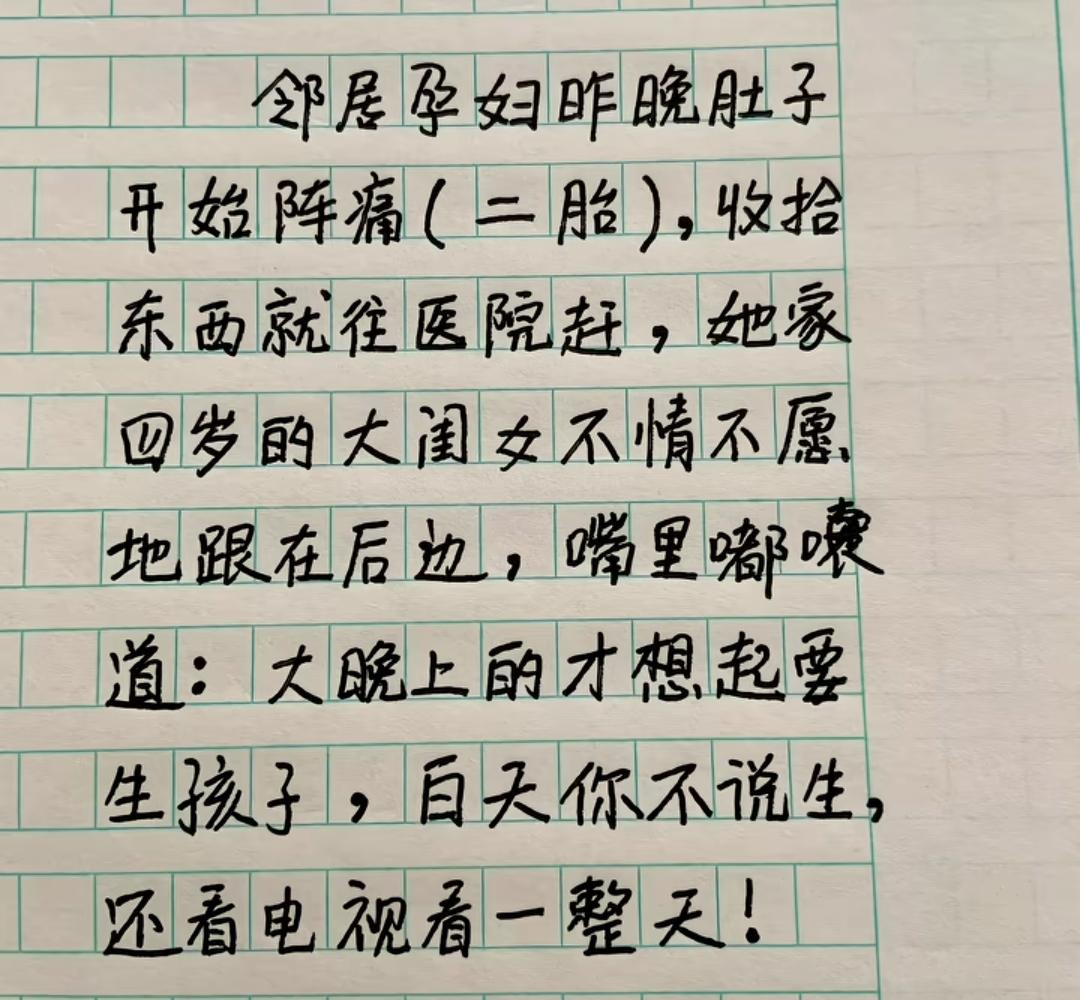 邻居孕妇昨晚肚子
开始阵痛(二胎),收拾
东西就往医院赶，她家
四岁的大闺女不情不愿
地跟在后边，嘴里嘟囔
道：大晚上的才想起要
生孩子，白天你不说生，
还看电视看一整天！